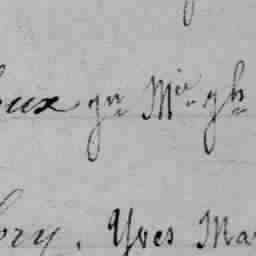 oux gn Mie gh
ory, Yves Ma